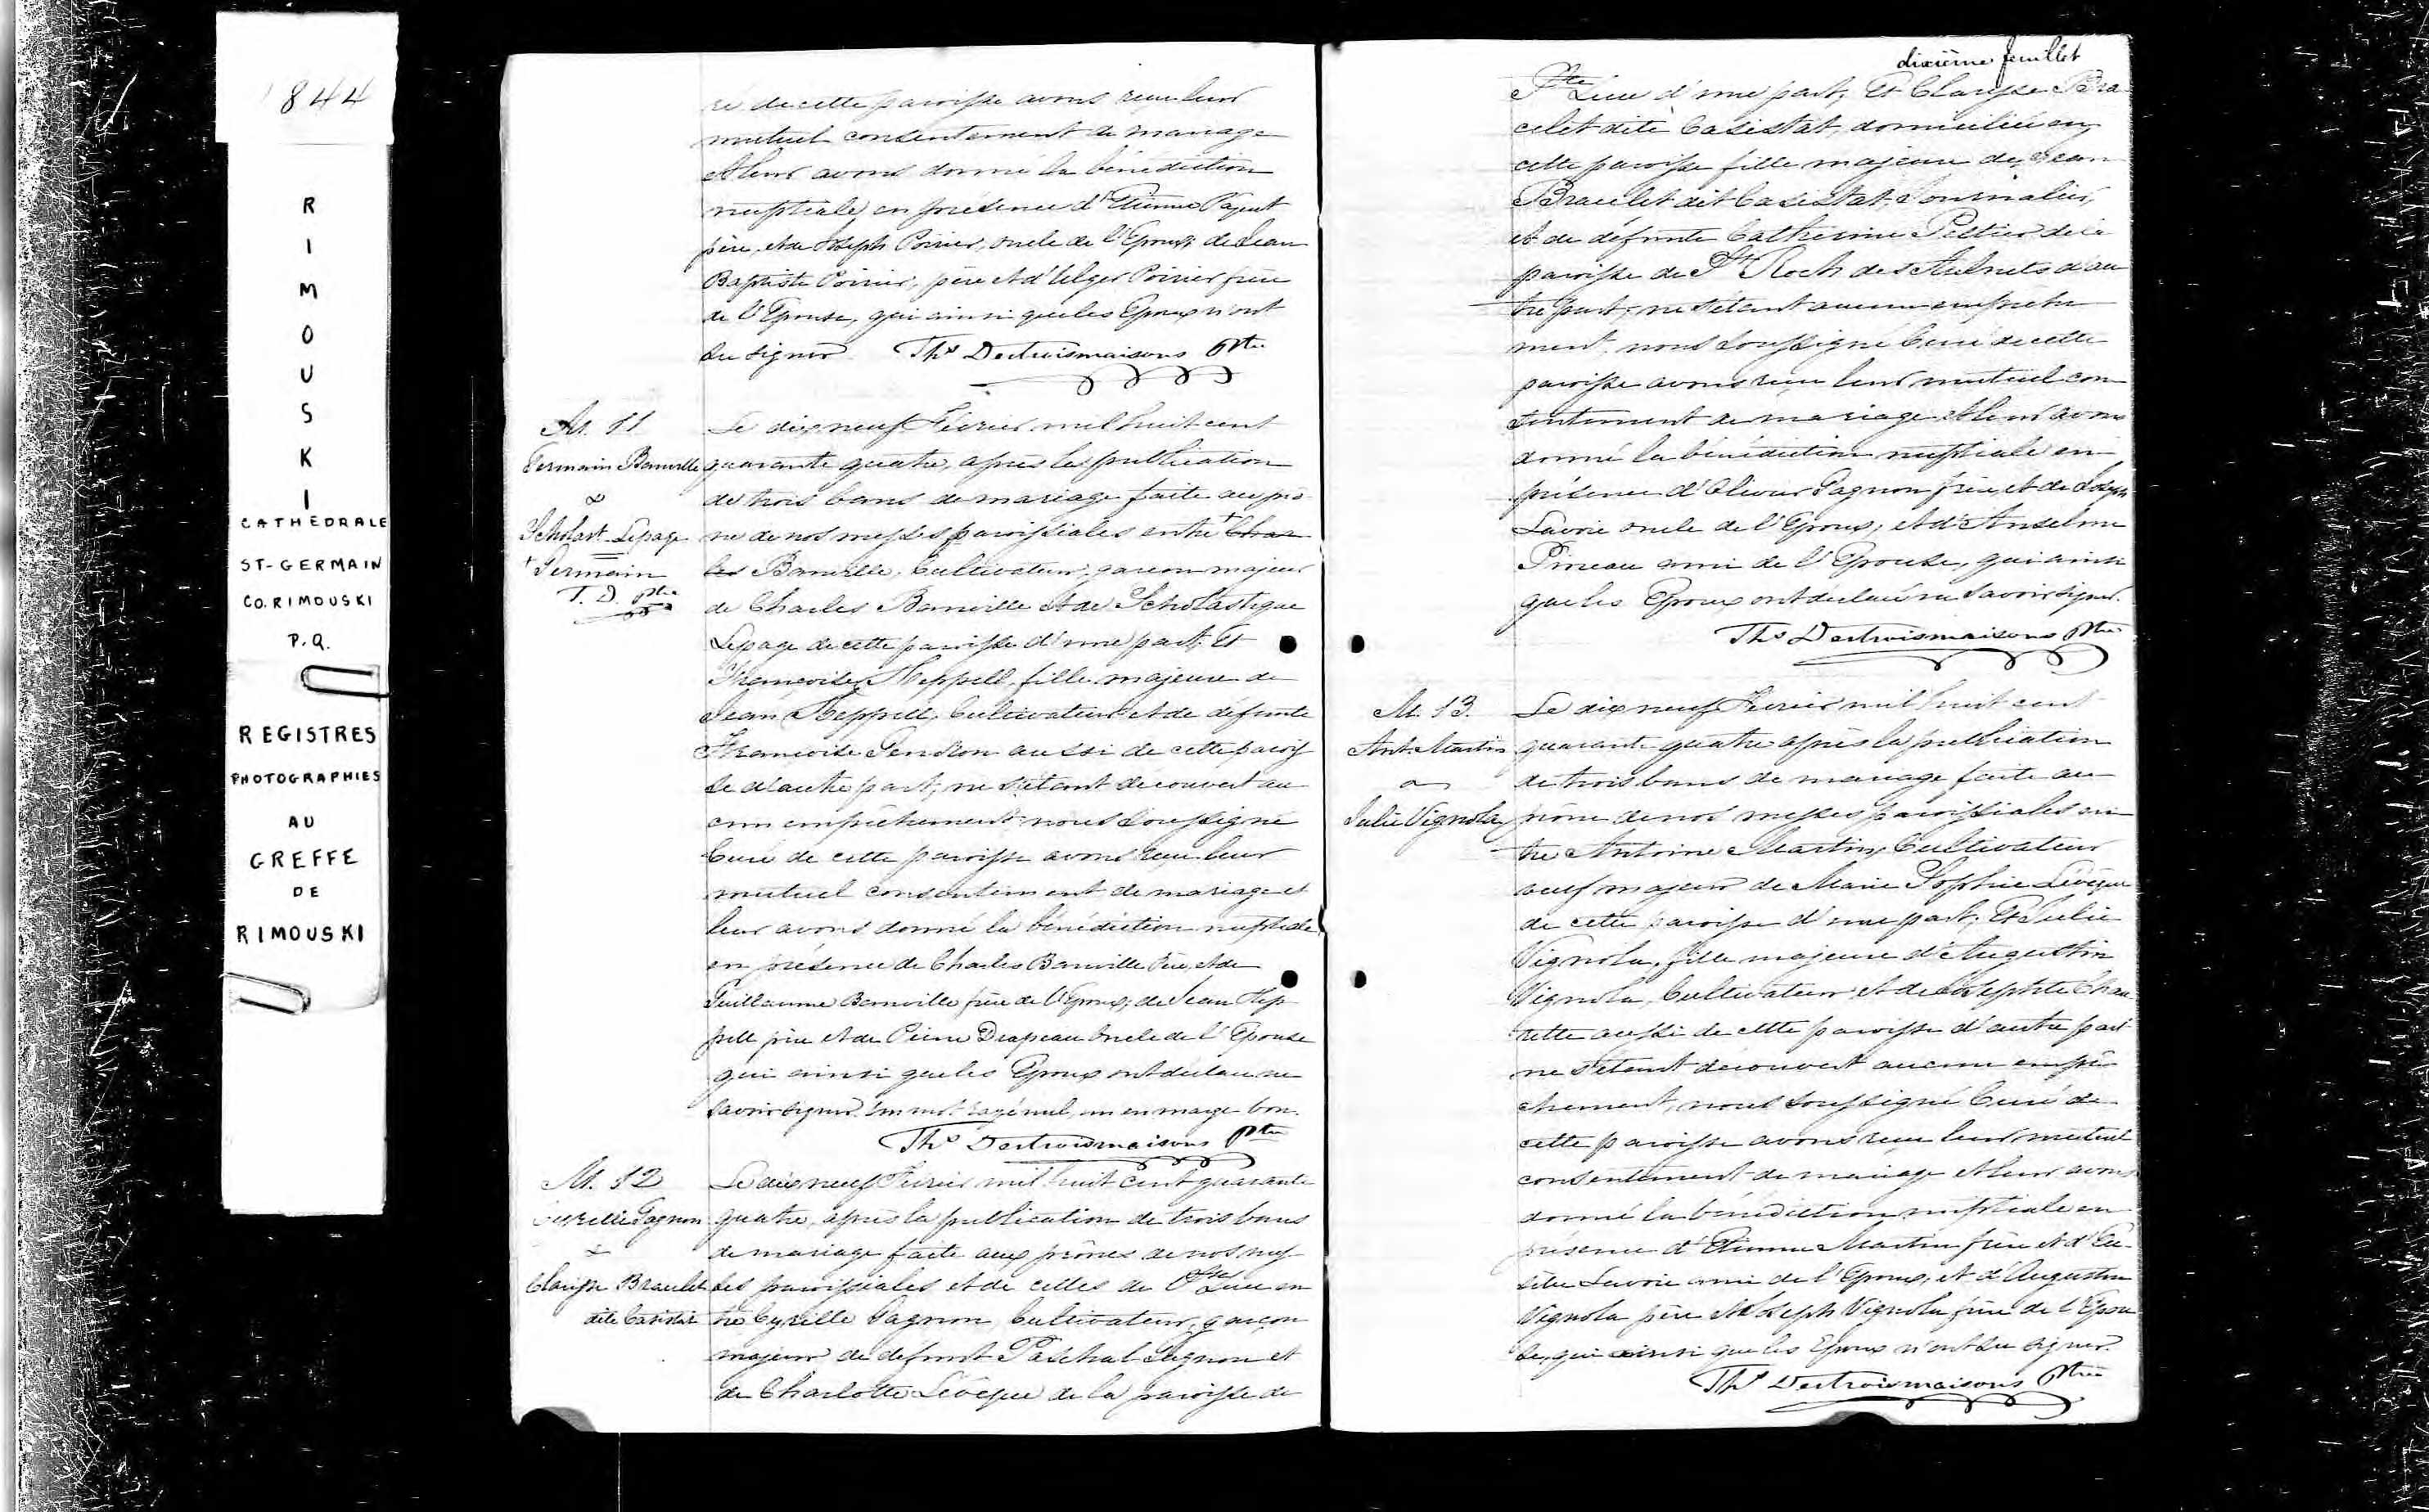 1844
RIMOUSKI
CATHÉDRALE
ST-GERMAIN
CO. RIMOUSKI
P.Q.
REGISTRES
PHOTOGRAPHIES
AU
GREFFE
DE
RIMOUSKI
ré de cette paroisse avons reçu leur
mutuel consentement de mariage
et leur avons donné la bénédiction
nuptiale en présence d'Etienne Paquet
père, et de Joseph Poirier, oncle de l'Epoux; de Jean
Baptiste Poirier, père et d'Elzer Poirier frère
de l'Epouse, qui ainsi que les Epoux n'ont
su signer. Ths Destroismaisons Ptre
M. 11
Germain Banville
&
Scholast. Lepage
+ Germain
T. D. Ptre
Le dix neuf Février mil huit cent
quarante quatre, après la publication
de trois bans de mariage faite au prô
ne de nos messes paroissiales entre + Char
les Banville, Cultivateur, garçon majeur
de Charles Banville et de Scholastique
Lepage de cette paroisse d'une part; Et
Françoise Heppell, fille majeure de
Jean Heppell, Cultivateur et de défunte
Françoise Gendron aussi de cette parois
se d'autre part; ne s'étant découvert au
cun empêchement nous soussigné
Curé de cette paroisse avons reçu leur
mutuel consentement de mariage et
leur avons donné la bénédiction nuptiale
en présence de Charles Banville Père, et de
Guillaume Banville frère de l'Epoux; de Jean Hep
pell père et de Pierre Drapeau Oncle de l'Epouse
qui ainsi que les Epoux ont déclaré ne
savoir signer. Un mot rayé nul, un en marge bon.
Ths Destroismaisons Ptre
M. 12
Cyrille Gagnon
&
Clarisse Braulet
dite Casistat
Le dix neuf Février mil huit cent quarante
quatre, après la publication de trois bans
de mariage faite aux prônes de nos mes
ses paroissiales et de celles de Ste Luce en
tre Cyrille Gagnon, Cultivateur, garçon
majeur de défunt Paschal Gagnon et
de Charlotte Lévêque de la paroisse de
dixième feuillet
Ste Luce d'une part; Et Clarisse Bra
celet dite Casistat, domiciliée en
cette paroisse fille majeure de Jean
Bracelet dit Casistat, Journalier,
et de défunte Catherine Peltier de la
paroisse de St Roch des Aulnets d'au
tre part; ne s'étant aucun empêche
ment, nous soussigné Curé de cette
paroisse avons reçu leur mutuel con
sentement de mariage et leur avons
donné la bénédiction nuptiale en
présence d'Olivier Gagnon frère, et de Joseph
Lavoie oncle de l'Epoux; et d'Anselme
Pineau ami de l'Epouse, qui ainsi
que les Epoux ont déclaré ne savoir signer.
Ths Destroismaisons Ptre
M. 13.
Ant. Martin
&
Julie Vignola
Le dix neuf Février mil huit cent
quarante quatre après la publication
de trois bans de mariage faite au
prône de nos messes paroissiales en
tre Antoine Martin, Cultivateur
veuf majeur de Marie Sophie Lévêque
de cette paroisse d'une part; Et Julie
Vignola, fille majeure d'Augustin
Vignola, Cultivateur et de Josephte Chau
rette aussi de cette paroisse d'autre part
ne s'étant découvert aucun empê
chement, nous soussigné Curé de
cette paroisse avons reçu leur mutuel
consentement de mariage et leur avons
donné la bénédiction nuptiale en
présence d'Etienne Martin frère et d'Eu
sèbe Lavoie ami de l'Epoux; et d'Augustin
Vignola père et Joseph Vignola frère de l'Epou
se, qui ainsi que les Epoux n'ont su signer.
Ths Destroismaisons Ptre